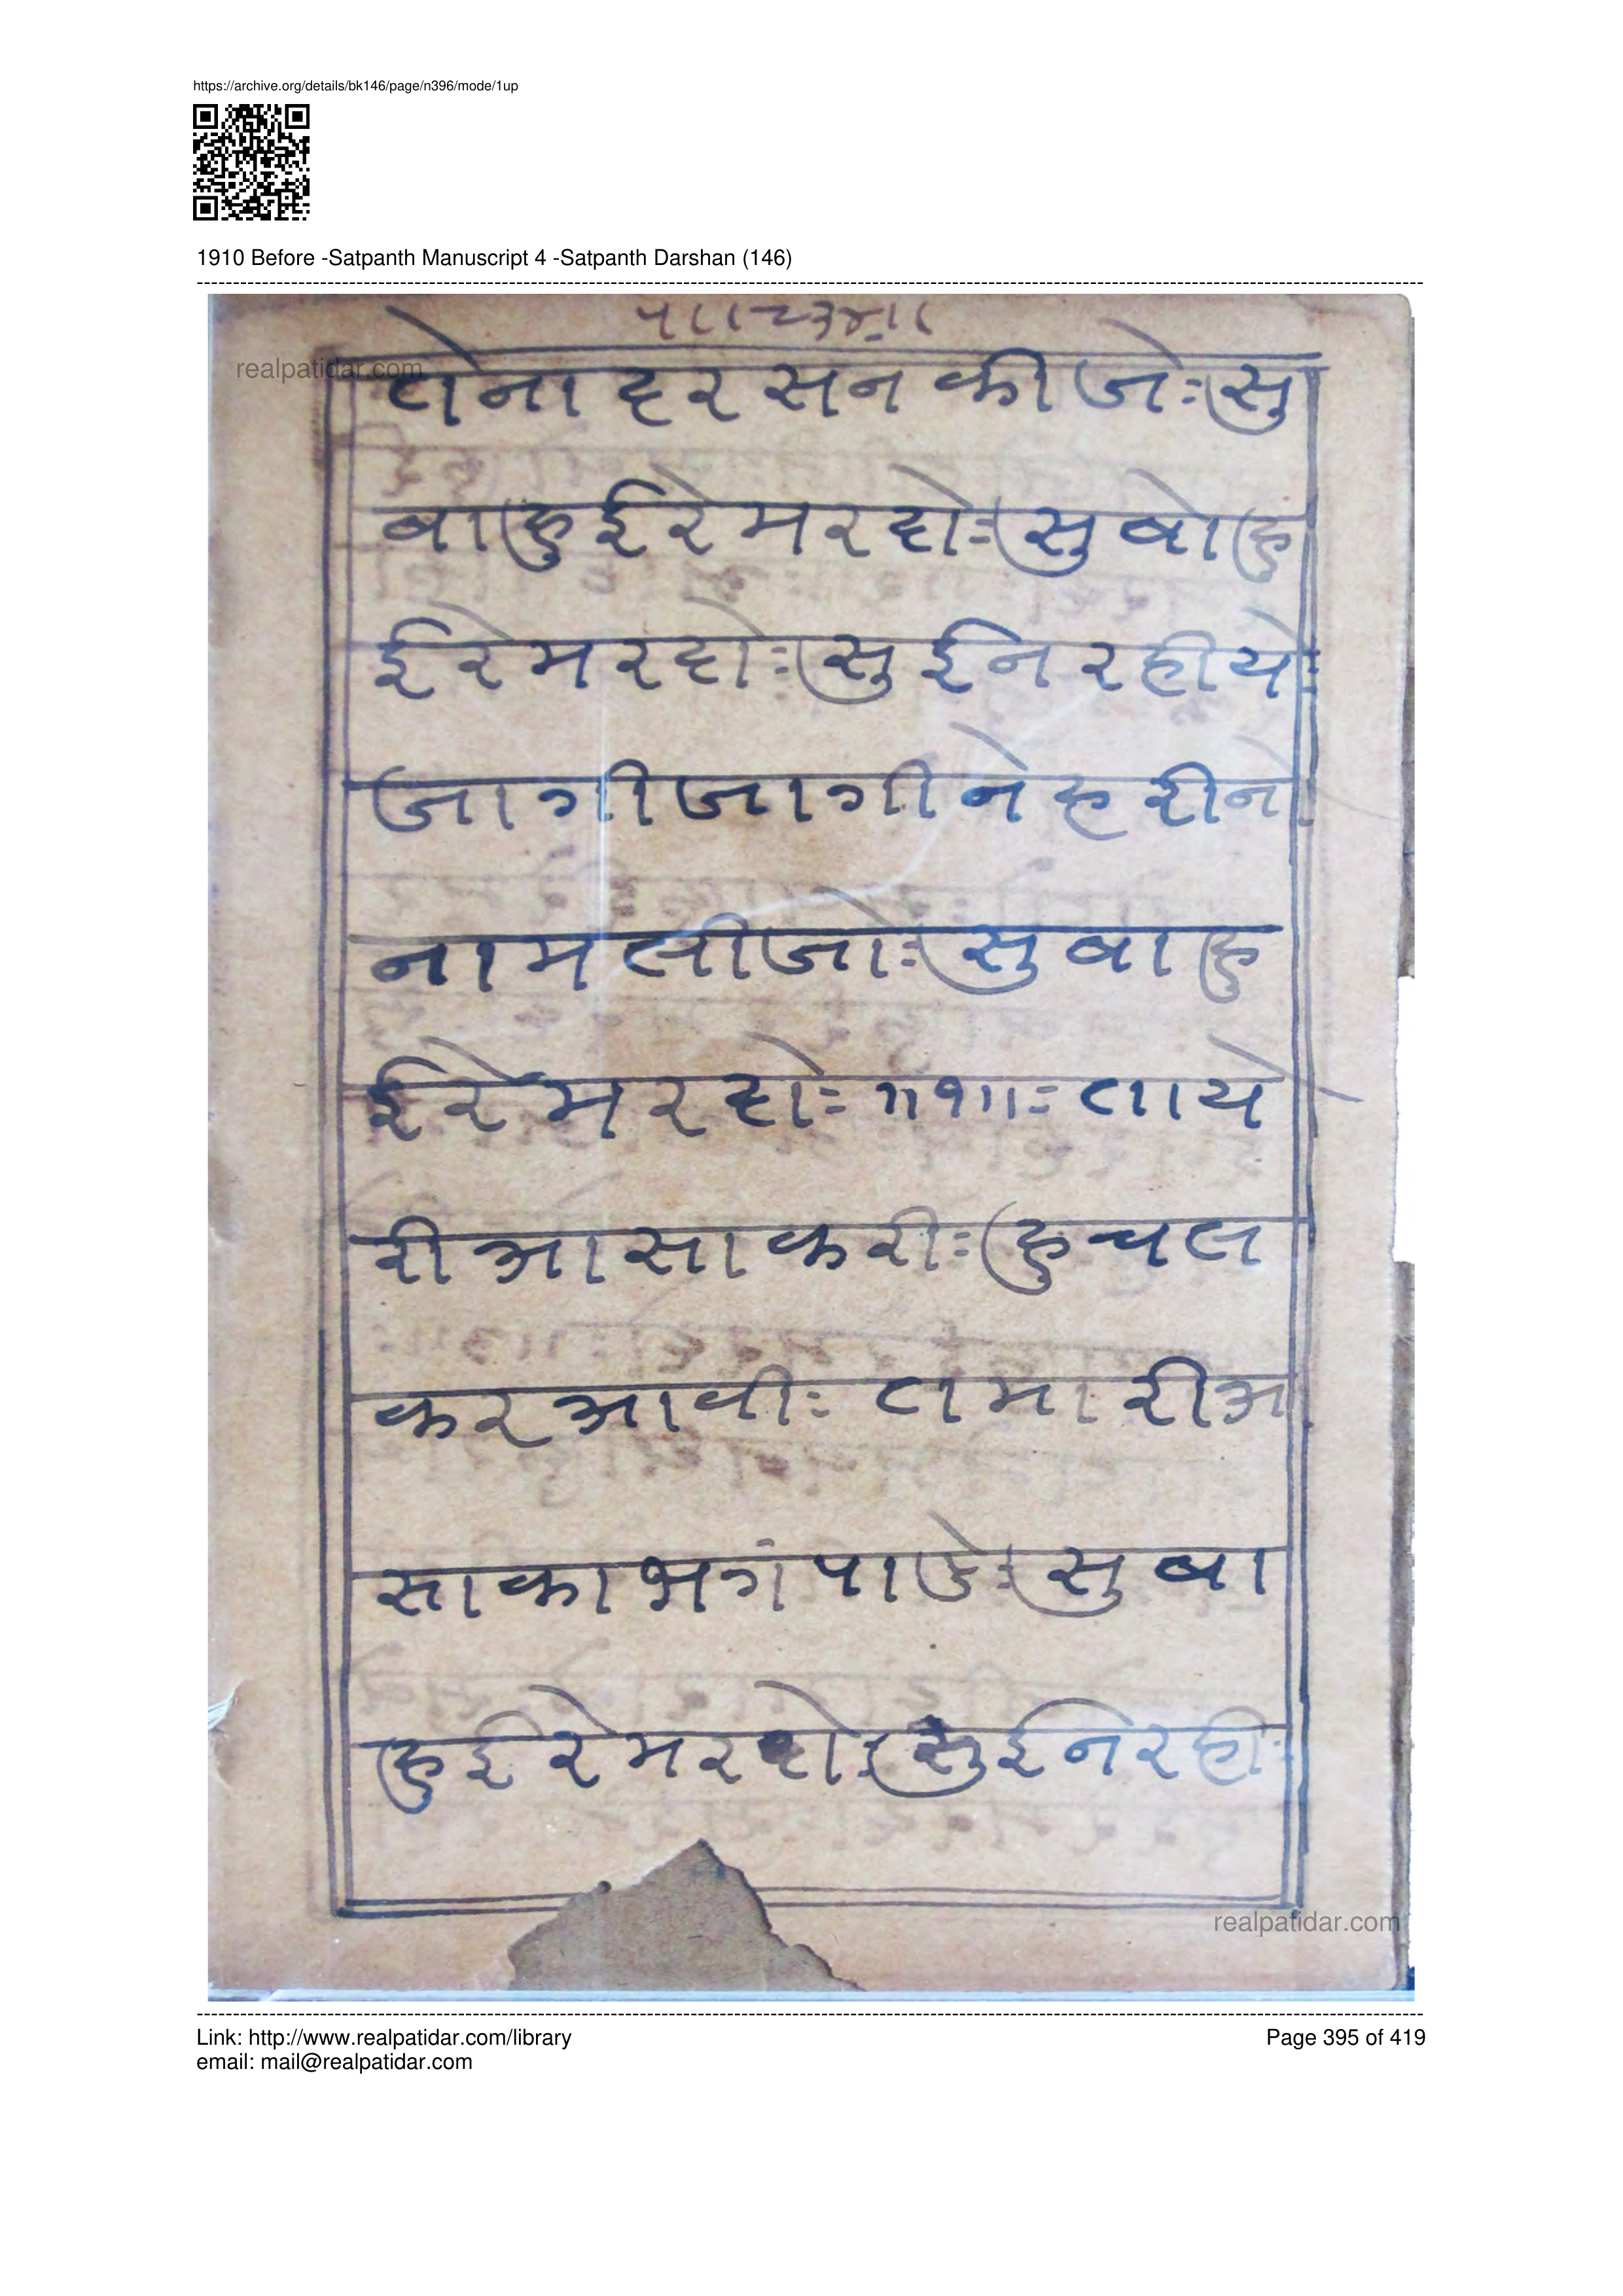 https://archive.org/details/bk146/page/n396/mode/1up
1910 Before -Satpanth Manuscript 4 -Satpanth Darshan (146)
realpatidar.com
तेना दरसन की जेः सु
वा हु ई रे मरदोः सु वो हु
ई रे मरदोः सु ई न रहीयेः
जागी जागी ने हरी नो
नाम लीजोः सु वा हु
ई रे मरदोः ॥१॥ः ताये
री आसा करीः हु चल
कर आवीः तमारी आ
सा का भगं पाडेः सु वा
हु ई रे मरदोः सु ई ने रहीः
realpatidar.com
Link: http://www.realpatidar.com/library
Page 395 of 419
email: mail@realpatidar.com